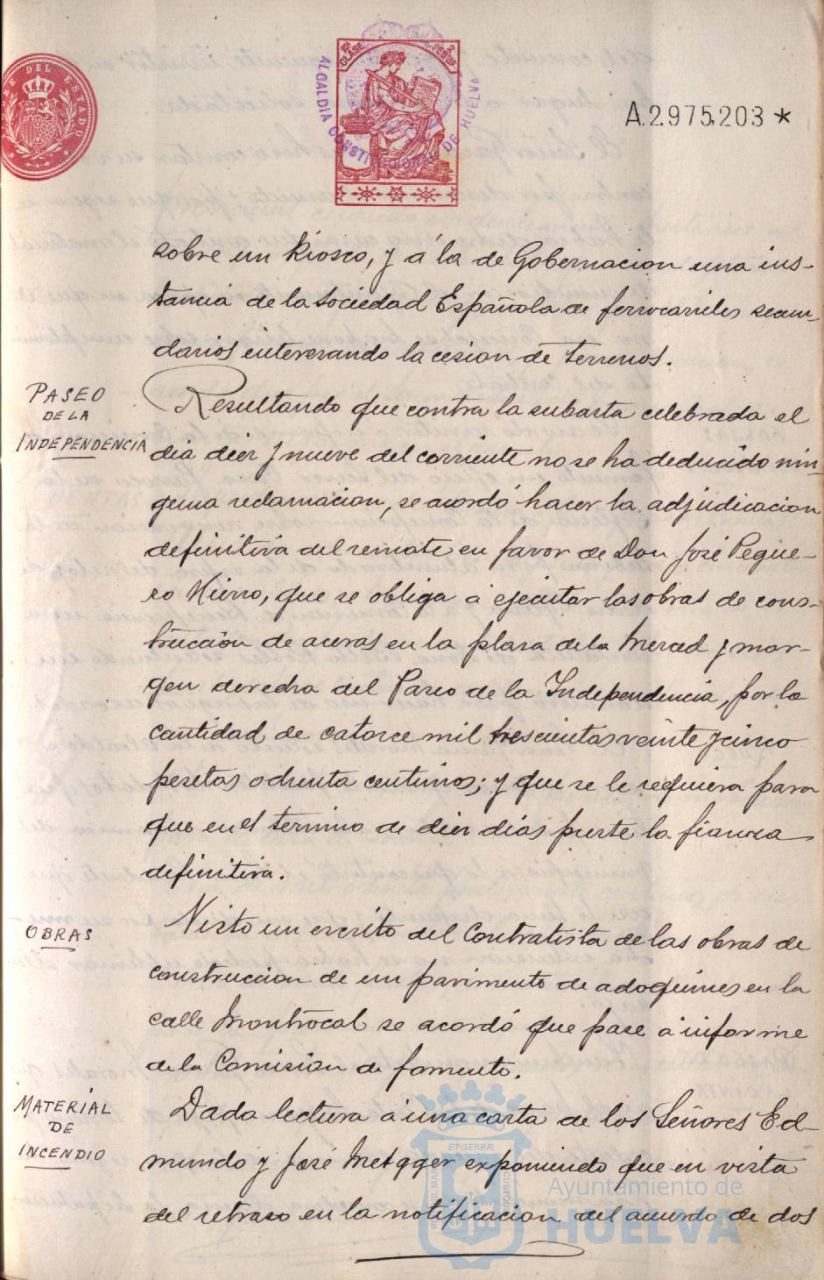 TIMBRE DEL ESTADO
10ª CLASE
2 PESETAS
ALCALDIA CONSTITUCIONAL DE HUELVA
A.2.975.203 *
sobre un kiosco, y á la de Gobernacion una ins-
tancia de la Sociedad Española de ferrocarriles secun-
darios interesando la cesion de terrenos.
PASEO
DE LA
INDEPENDENCIA
Resultando que contra la subasta celebrada el
dia diez y nueve del corriente no se ha deducido nin-
guna reclamacion, se acordó hacer la adjudicacion
definitiva del remate en favor de Don José Pegue-
ro Hierro, que se obliga á ejecutar las obras de cons-
trucción de aceras en la plaza de la Merced y mar-
gen derecha del Paseo de la Independencia, por la
cantidad de catorce mil trescientas veinte y cinco
pesetas ochenta centimos; y que se le requiera para
que en el termino de diez dias preste la fianza
definitiva.
OBRAS
Visto un escrito del Contratista de las obras de
construccion de un pavimento de adoquines en la
calle Monrocal se acordó que pase á informe
de la Comision de fomento.
MATERIAL
DE
INCENDIO
Dada lectura á una carta de los Señores Ed-
mundo y José Metzger exponiendo que en vista
del retraso en la notificacion del acuerdo de dos
Ayuntamiento de
HUELVA